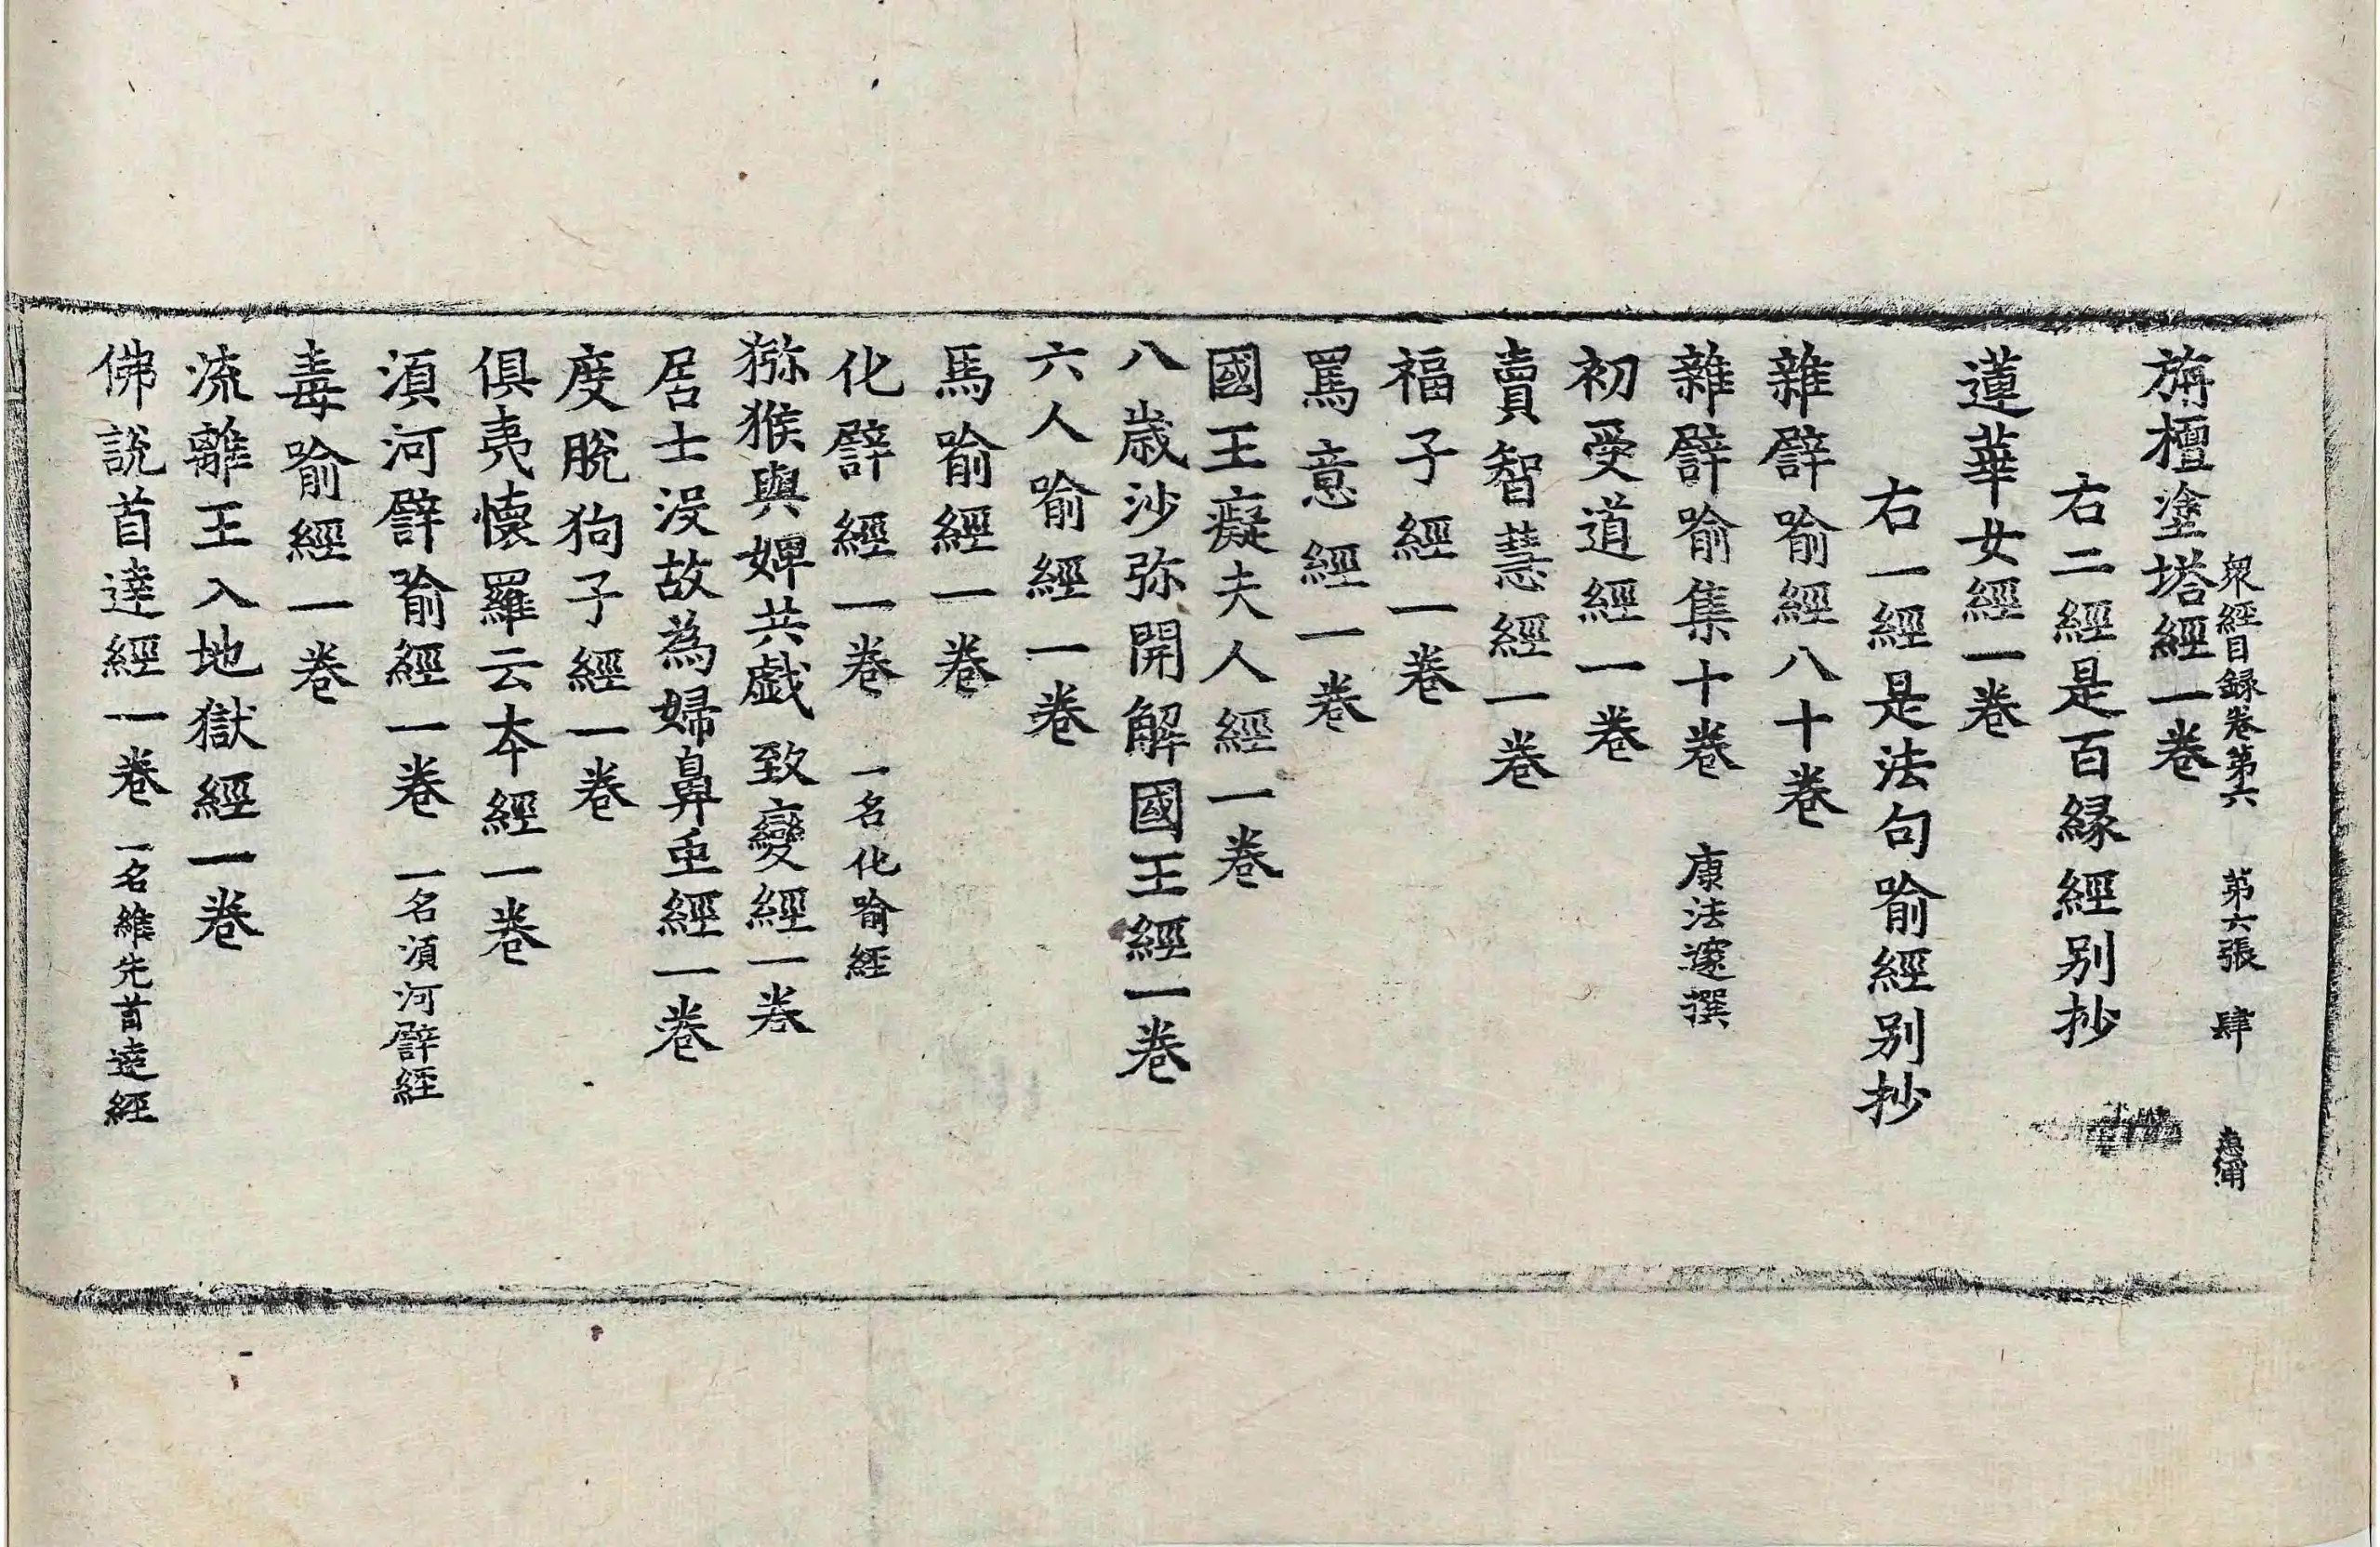 旃檀塗塔經一卷
衆經目録卷第六　第六張　肆
右二經是百縁經別抄
蓮華女經一卷
右一經是法句喻經別抄
雜譬喻經八十卷
雜譬喻集十卷　康法邃撰
初受道經一卷
賣智慧經一卷
福子經一卷
罵意經一卷
國王癡夫人經一卷
八歳沙弥開解國王經一卷
六人喻經一卷
馬喻經一卷
化譬經一卷　一名化喻經
猕猴與婢共戯致變經一卷
居士没故為婦鼻䖝經一卷
度脫狗子經一卷
俱夷懷羅云本經一卷
湏河譬喻經一卷　一名湏河譬經
毒喻經一卷
流離王入地獄經一卷
佛說首達經一卷　一名維先首達經